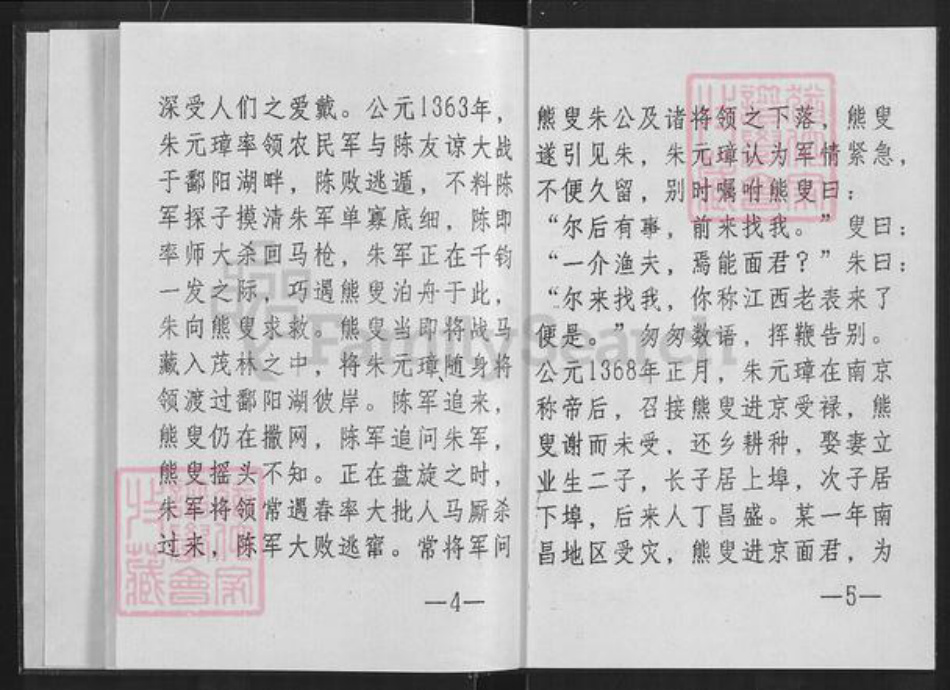 深受人们之爱戴。公元1363年，
朱元璋率领农民军与陈友谅大战
于鄱阳湖畔，陈败逃遁，不料陈
军探子摸清朱军单寡底细，陈即
率师大杀回马枪，朱军正在千钧
一发之际，巧遇熊叟泊舟于此，
朱向熊叟求救。熊叟当即将战马
藏入茂林之中，将朱元璋随身将
领渡过鄱阳湖彼岸。陈军追来，
熊叟仍在撒网，陈军追问朱军，
熊叟摇头不知。正在盘旋之时，
朱军将领常遇春率大批人马厮杀
过来，陈军大败逃窜。常将军问
—4—
熊叟朱公及诸将领之下落，熊叟
遂引见朱，朱元璋认为军情紧急，
不便久留，别时嘱咐熊叟曰：
“尔后有事，前来找我。”叟曰：
“一介渔夫，焉能面君？”朱曰：
“尔来找我，你称江西老表来了
便是。”匆匆数语，挥鞭告别。
公元1368年正月，朱元璋在南京
称帝后，召接熊叟进京受禄，熊
叟谢而未受，还乡耕种，娶妻立
业生二子，长子居上埠，次子居
下埠，后来人丁昌盛。某一年南
昌地区受灾，熊叟进京面君，为
—5—
FamilySearch